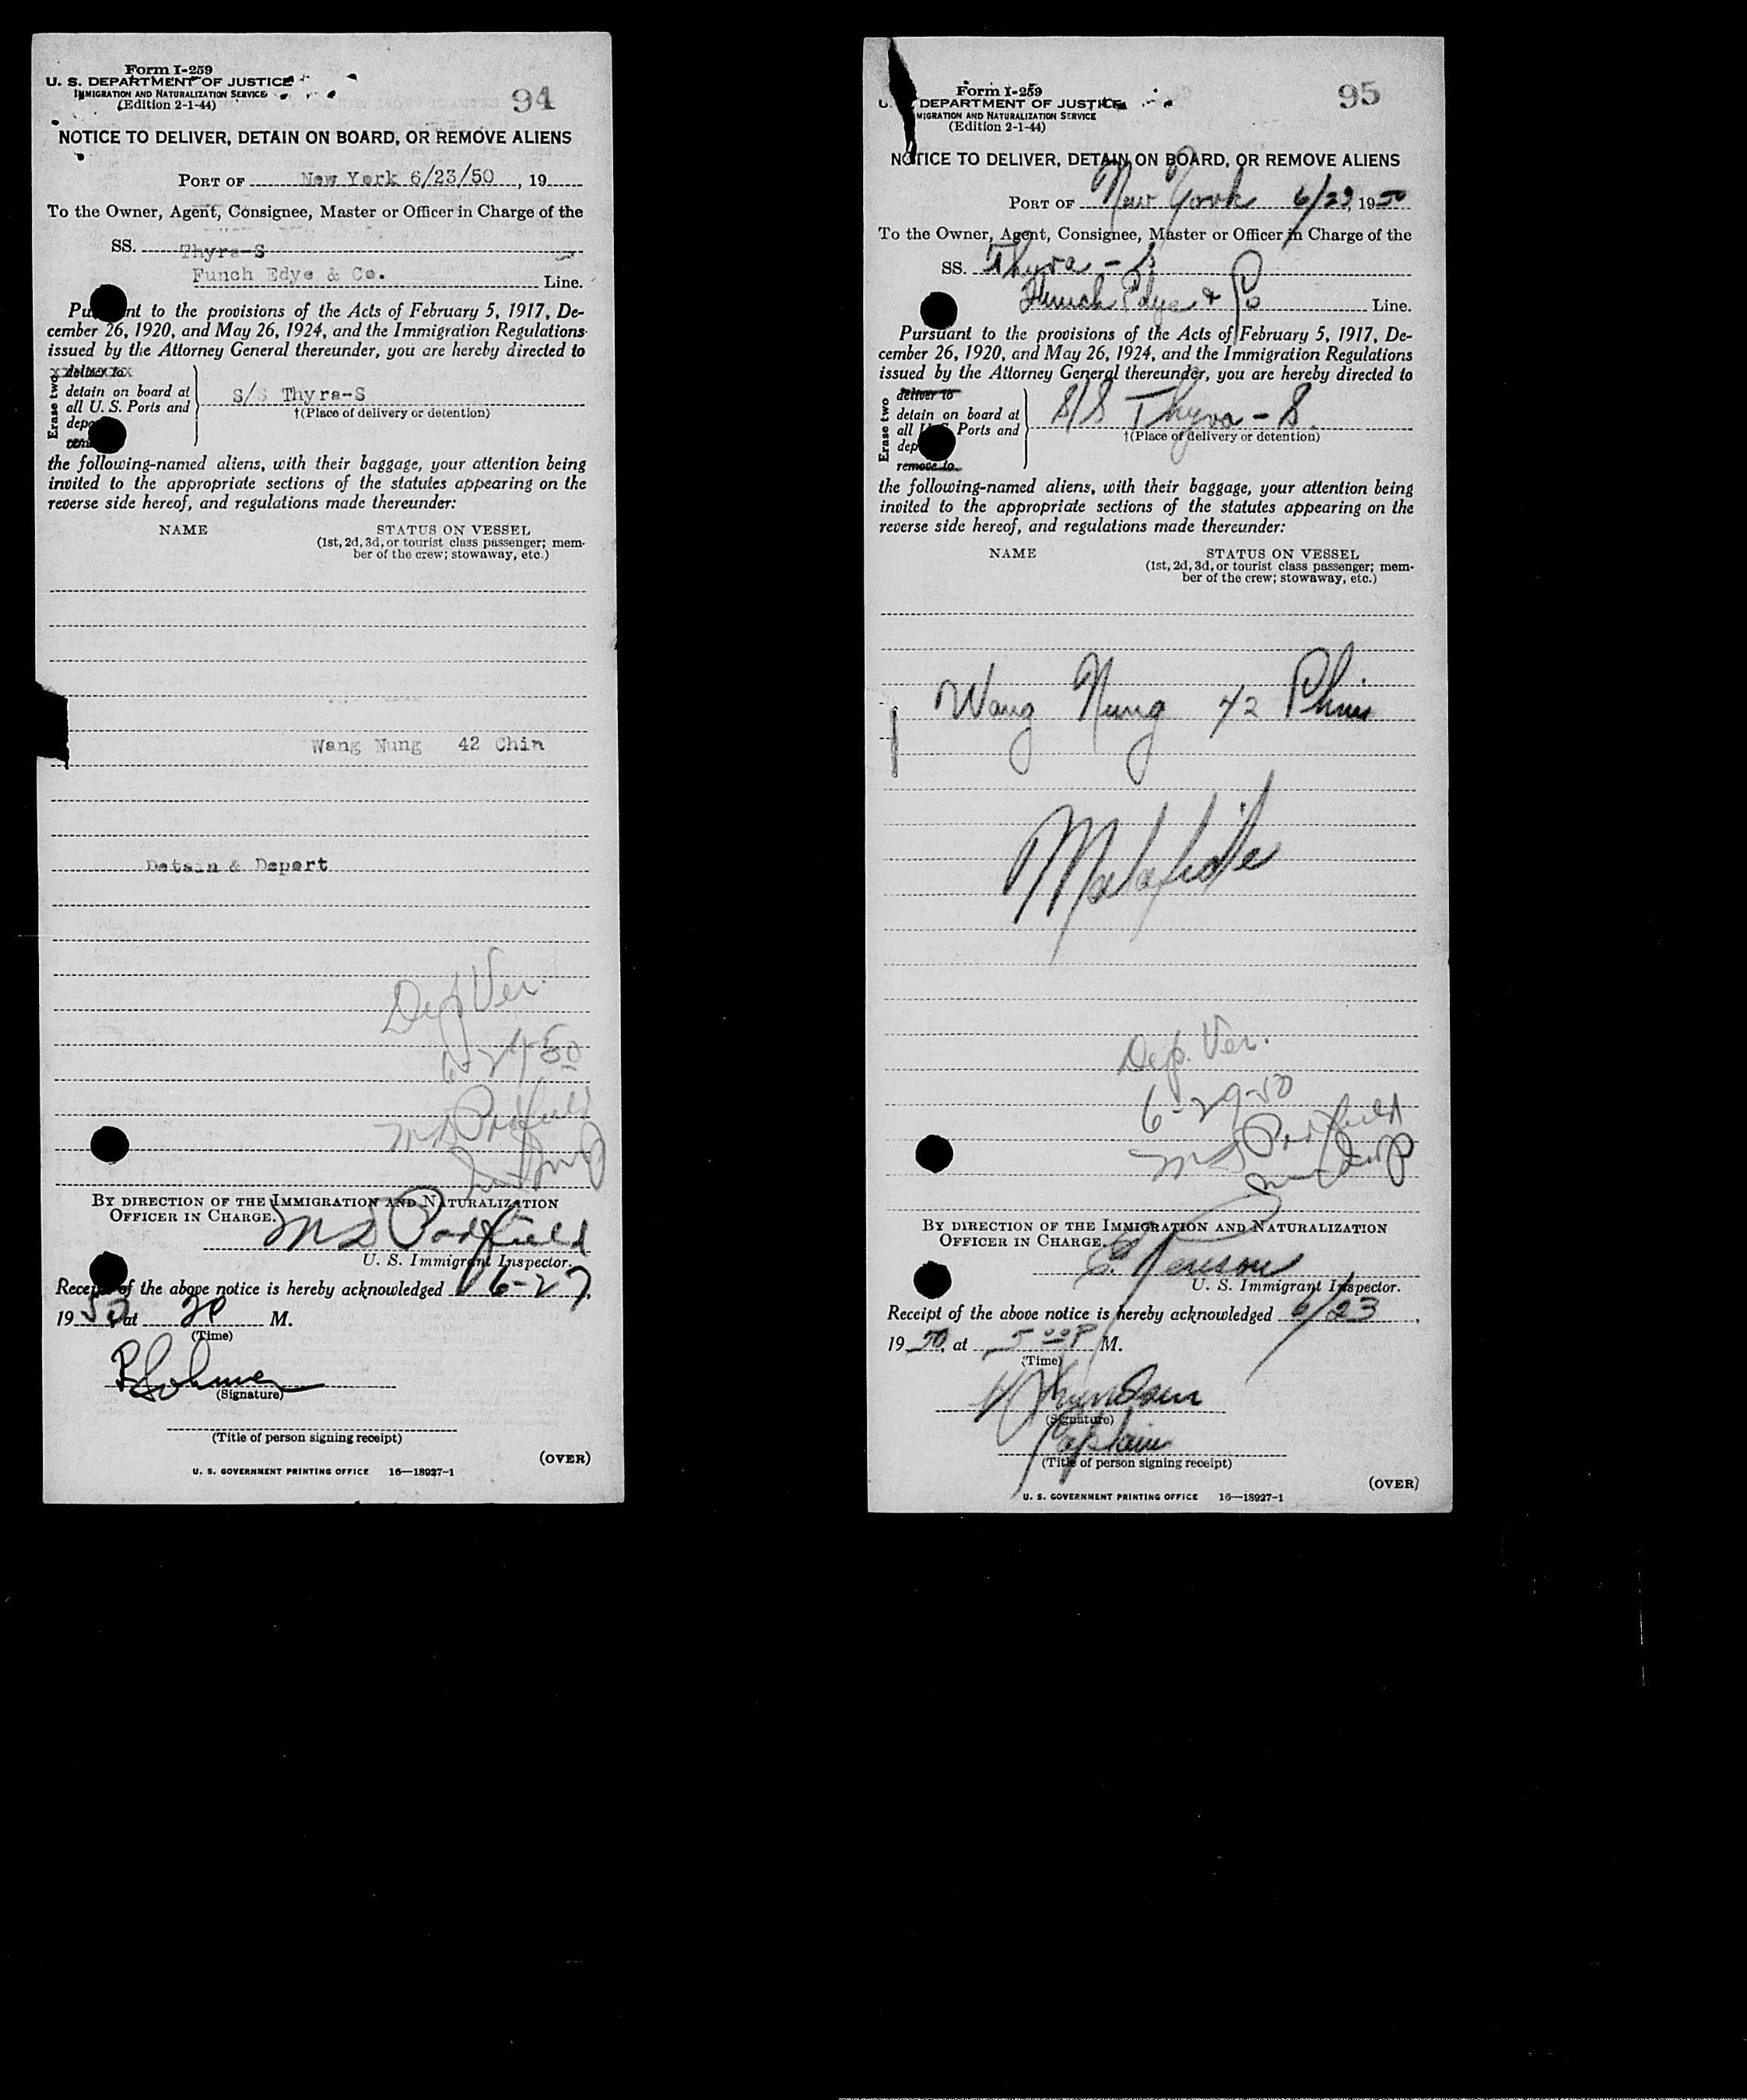 Form I-259
U. S. DEPARTMENT OF JUSTICE
IMMIGRATION AND NATURALIZATION SERVICE
(Edition 2-1-44)
94
NOTICE TO DELIVER, DETAIN ON BOARD, OR REMOVE ALIENS
PORT OF New York 6/23/50, 19
To the Owner, Agent, Consignee, Master or Officer in Charge of the
SS. Thyra-S
Funch Edye & Co. Line.
Pursuant to the provisions of the Acts of February 5, 1917, De-
cember 26, 1920, and May 26, 1924, and the Immigration Regulations
issued by the Attorney General thereunder, you are hereby directed to
Erase two
deliver to
detain on board at
all U. S. Ports and
S/S Thyra-S
†(Place of delivery or detention)
the following-named aliens, with their baggage, your attention being
invited to the appropriate sections of the statutes appearing on the
reverse side hereof, and regulations made thereunder:
NAME
STATUS ON VESSEL
(1st, 2d, 3d, or tourist class passenger; mem-
ber of the crew; stowaway, etc.)
Wang Nung 42 Chin
Detain & Deport
Dep Ver.
6-29-50
M D Padfield
BY DIRECTION OF THE IMMIGRATION AND NATURALIZATION
OFFICER IN CHARGE.
M D Padfield
U. S. Immigrant Inspector.
Receipt of the above notice is hereby acknowledged 6-27,
1950, at 2P M.
(Time)
(Signature)
(Title of person signing receipt)
(OVER)
U. S. GOVERNMENT PRINTING OFFICE 16—18927-1
Form I-259
U. DEPARTMENT OF JUSTICE
MIGRATION AND NATURALIZATION SERVICE
(Edition 2-1-44)
95
NOTICE TO DELIVER, DETAIN ON BOARD, OR REMOVE ALIENS
PORT OF New York 6/23, 1950
To the Owner, Agent, Consignee, Master or Officer in Charge of the
SS. Thyra - S
Funch Edye & Co Line.
Pursuant to the provisions of the Acts of February 5, 1917, De-
cember 26, 1920, and May 26, 1924, and the Immigration Regulations
issued by the Attorney General thereunder, you are hereby directed to
Erase two
deliver to
detain on board at
all U. S. Ports and
remove to
S/S Thyra - S.
†(Place of delivery or detention)
the following-named aliens, with their baggage, your attention being
invited to the appropriate sections of the statutes appearing on the
reverse side hereof, and regulations made thereunder:
NAME
STATUS ON VESSEL
(1st, 2d, 3d, or tourist class passenger; mem-
ber of the crew; stowaway, etc.)
Wang Nung 42 Chin
Malafide
Dep. Ver.
6-29-50
M D Padfield
BY DIRECTION OF THE IMMIGRATION AND NATURALIZATION
OFFICER IN CHARGE.
U. S. Immigrant Inspector.
Receipt of the above notice is hereby acknowledged 6/23,
1950, at 5 00 P M.
(Time)
(Signature)
Captain
(Title of person signing receipt)
(OVER)
U. S. GOVERNMENT PRINTING OFFICE 16—18927-1